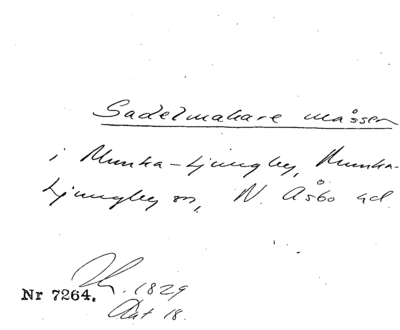 Sadelmakare mässen
i Munka-Ljungby, Munka-
Ljungby sn, N. Åsbo hd.
Nr 7264.
1829
18.